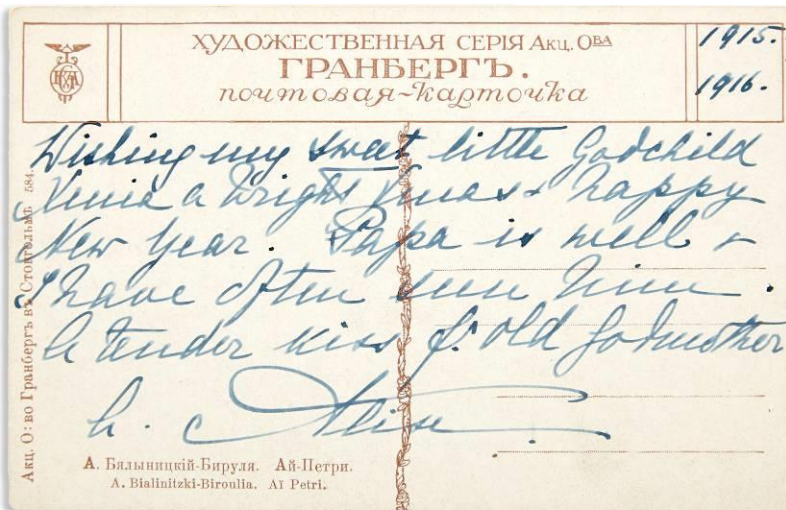 ХУДОЖЕСТВЕННАЯ СЕРІЯ Акц. ОВА
ГРАНБЕРГЪ.
почтовая-карточка
1915.
1916.
Wishing my sweet little Godchild
Xenia a bright Xmas & happy
New Year. Papa is well &
I have often seen him.
A tender kiss f. old Godmother
Alix
Акц. О:во Гранбергъ въ Стокгольмѣ. 584.
А. Бялыницкій-Бируля. Ай-Петри.
A. Bialinitzki-Biroulia. AI Petri.